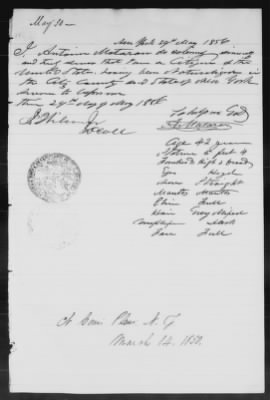 May 30 -
New York 29th May 1856
I Antonio Mataran do solemnly swear
and that I am a Citizen of the
United States having been Naturalized in
the City County and State of New York
Sworn to before me
this 29th day of May 1856
So help me God
A. Mataran
Age 42 years
Stature 5 feet 4
Forehead high & broad
Eyes Hazel
Nose Straight
Mouth
Chin Full
Hair Grey Mixed
Complexion Dark
Face Full
Ct Com Pleas N. Y.
March 14. 1850.